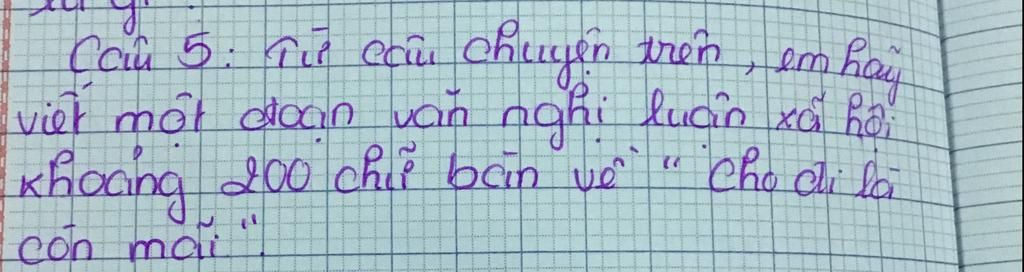 Câu 5: Từ câu chuyện trên, em hãy
viết một đoạn văn nghị luận xã hội
khoảng 200 chữ bàn về "cho đi là
còn mãi"